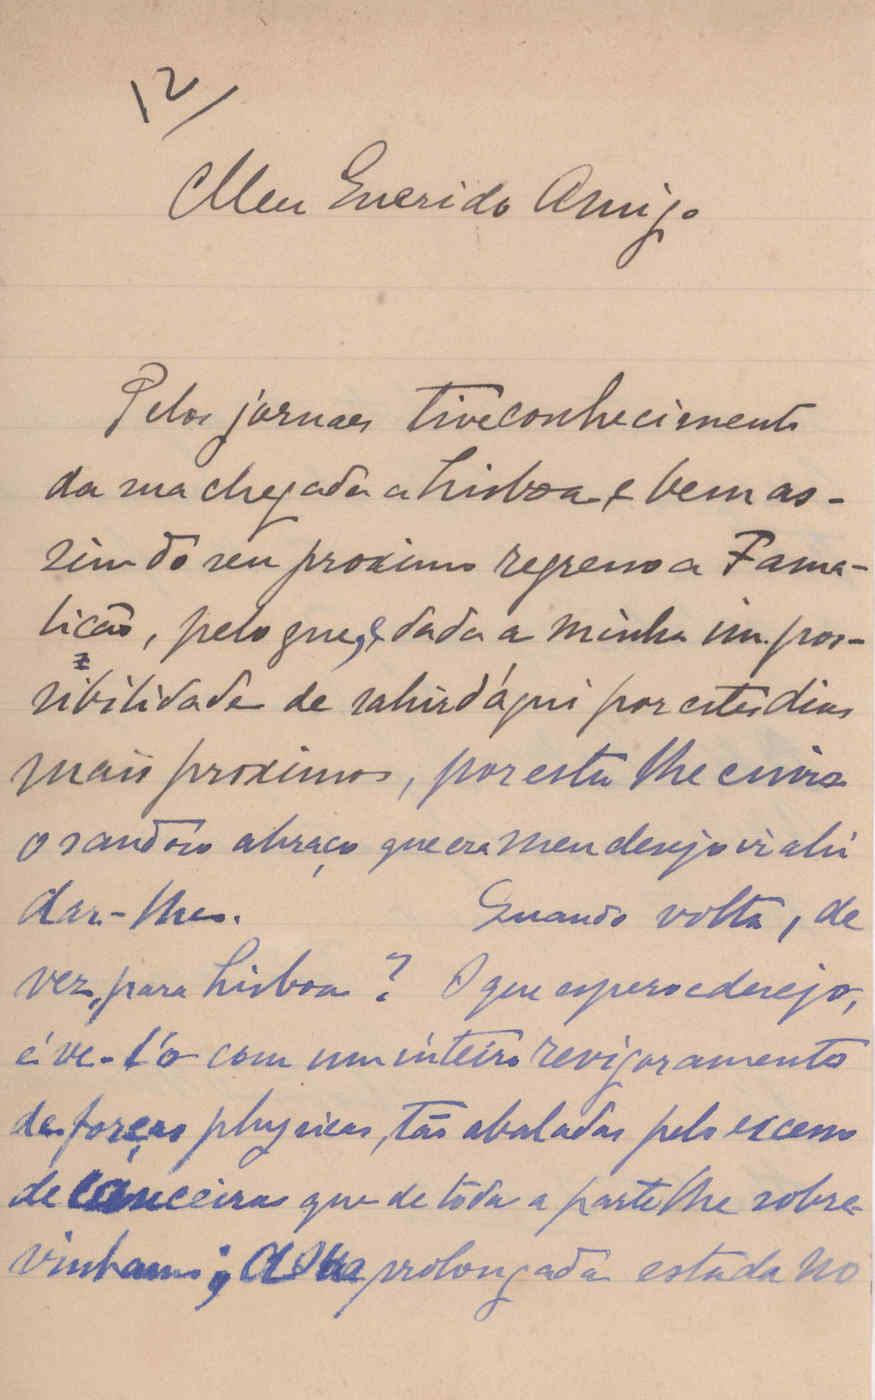 12/
Meu Querido Amigo
Pelos jornaes tive conhecimento
da sua chegada a Lisboa e bem as-
sim do seu proximo regresso a Fama-
licão, pelo que, e dada a minha impos-
sibilidade de sahir d'áqui por estes dias
mais proximos, por esta lhe envio
o saudoso abraço que era meu desejo ir ahi
dar-lhe. Quando volta, de
vez, para Lisboa? O que espero e desejo,
é ve-l'o com um inteiro revigoramento
de forças physicas, tão abaladas pelo excesso
de canceiras que de toda a parte lhe sobre-
vinham; A sua prolongada estada no